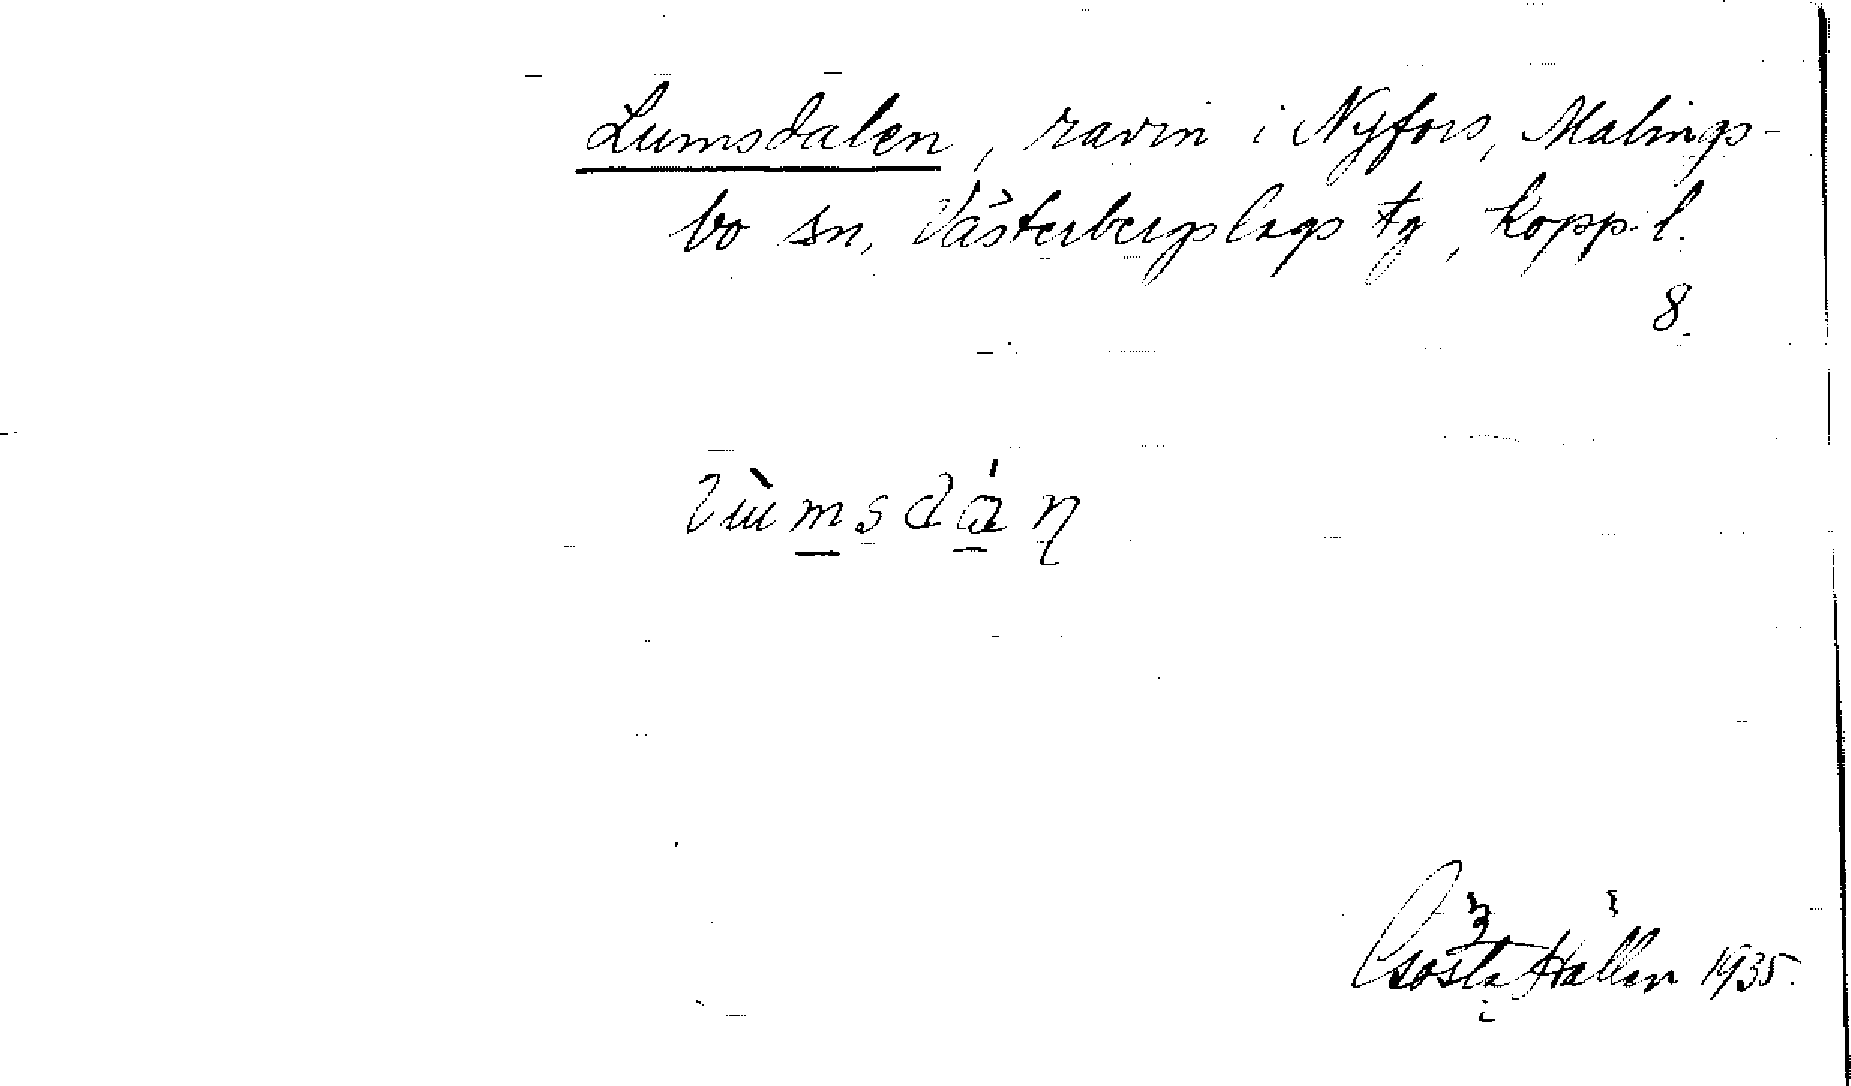 Lumsdalen, ravin i Nyfors, Malings-
bo sn, Västerbergslags tg, Kopp. l.
8.
Gösta Hallen 1935.